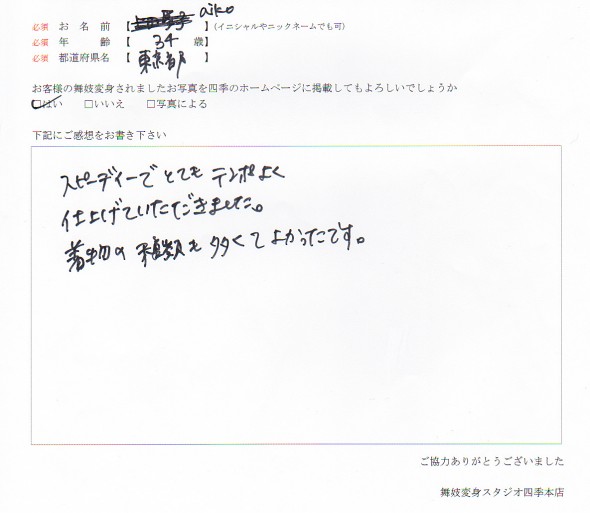 aiko
必須 お 名 前 【 】(イニシャルやニックネームでも可)
必須 年 齢 【 34 歳】
必須 都道府県名 【 東京都 】
お客様の舞妓変身されましたお写真を四季のホームページに掲載してもよろしいでしょうか
☑はい □いいえ □写真による
下記にご感想をお書き下さい
スピーディーでとてもテンポよく
仕上げていただきました。
着物の種類も多くてよかったです。
ご協力ありがとうございました
舞妓変身スタジオ四季本店